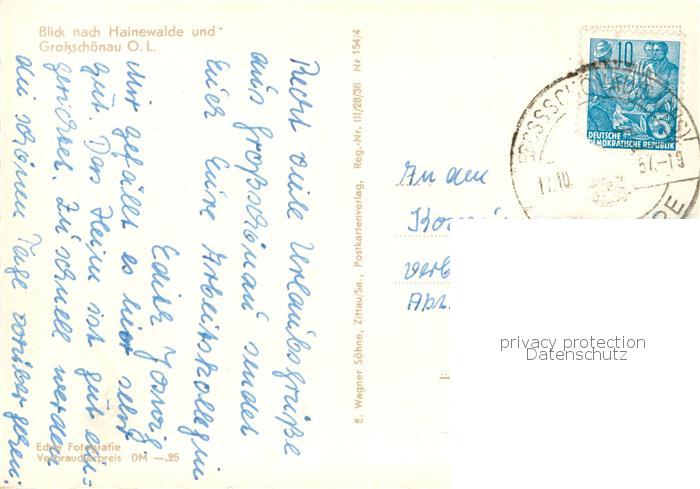 Blick nach Hainewalde und
Großschönau O. L.
Recht viele Urlaubsgrüße
aus Großschönau sendet
Euch Eure Arbeitskollegin
Edith
Mir gefällt es hier sehr
gut. Das Heim ist gut ein-
gerichtet. Zu schnell werden
die schönen Tage vorüber gehen.
Echte Fotografie
Verbraucherpreis DM —.25
E. Wagner Söhne, Zittau/Sa., Postkartenverlag, Reg.-Nr. III/28/38 Nr 154/4
10
DEUTSCHE
DEMOKRATISCHE REPUBLIK
17.10. 57.-19
An den
privacy protection
Datenschutz